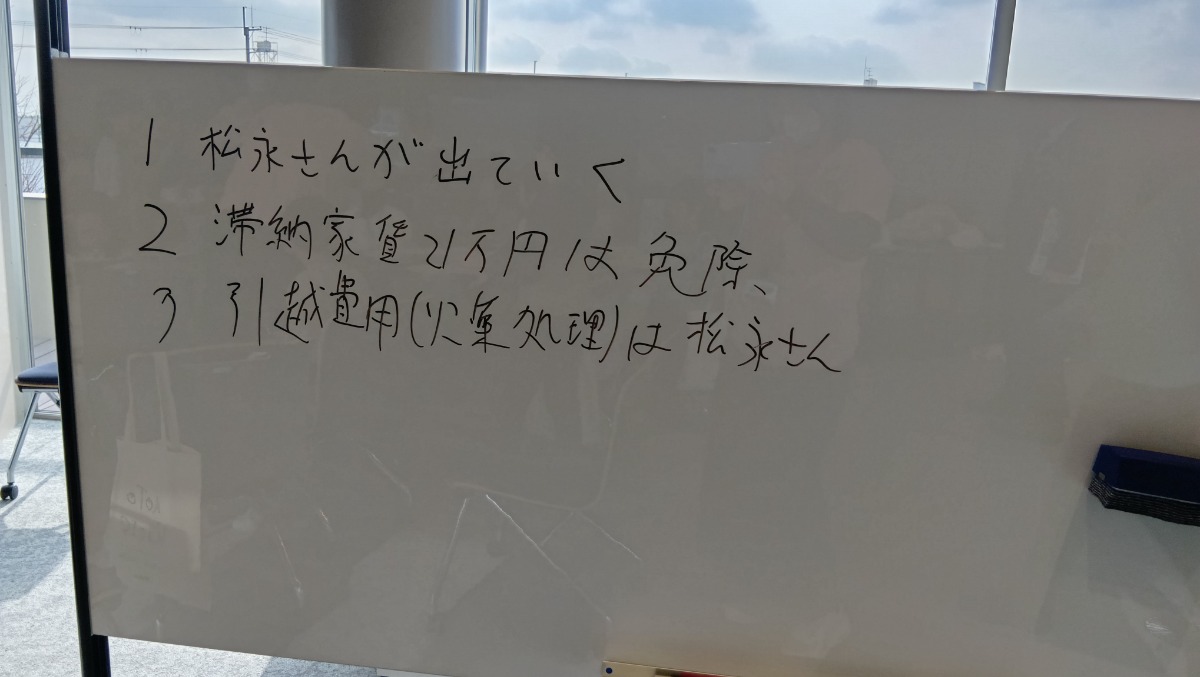 1 松永さんが出ていく
2 滞納家賃21万円は免除、
3 引越費用(火薬処理)は松永さん